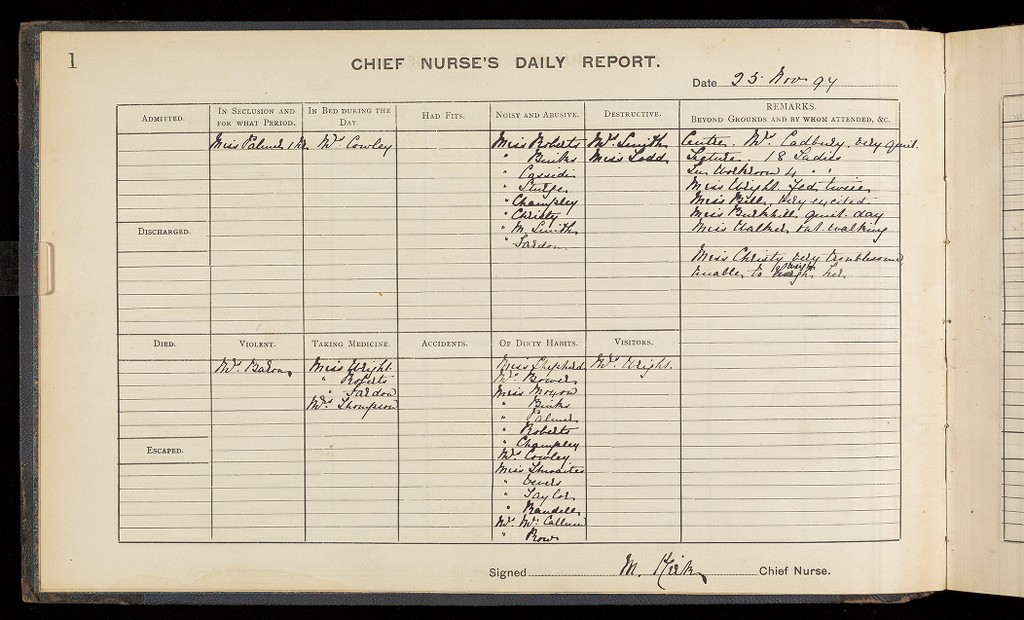 1
CHIEF NURSE'S DAILY REPORT.
Date 25 Nov 94
ADMITTED.
IN SECLUSION AND FOR WHAT PERIOD.
Miss Palmer 1 hr
IN BED DURING THE DAY.
Mrs Cowley
HAD FITS.
NOISY AND ABUSIVE.
Miss Roberts
" Binks
" Cassedi
" Sturge
" Champley
" Christy
" M. Smith
" Fardon
DESTRUCTIVE.
Mrs Smith
Miss Todd
REMARKS.
BEYOND GROUNDS AND BY WHOM ATTENDED, &C.
Centre. Mrs Cadbury. very quiet
Lecture. 18 Ladies
In Workroom 4 " "
Miss Wright Fed twice
Miss Bill, very excited
Miss quiet day
Miss Walker out walking
Miss Christy very troublesome
unable to weigh her
DISCHARGED.
DIED.
VIOLENT.
Mrs Baron
TAKING MEDICINE.
Miss Wright
" Roberts
" Fardon
Mrs Thompson
ACCIDENTS.
OF DIRTY HABITS.
Miss Shepherd
Mrs Bower
Miss Moxon
" Binks
" Palmer
" Roberts
" Champley
Mrs Cowley
Miss Thwaites
" Evers
" Taylor
" Randell
Mrs McCallum
" Row
VISITORS.
Mrs Wright.
ESCAPED.
Signed M. Kirk Chief Nurse.